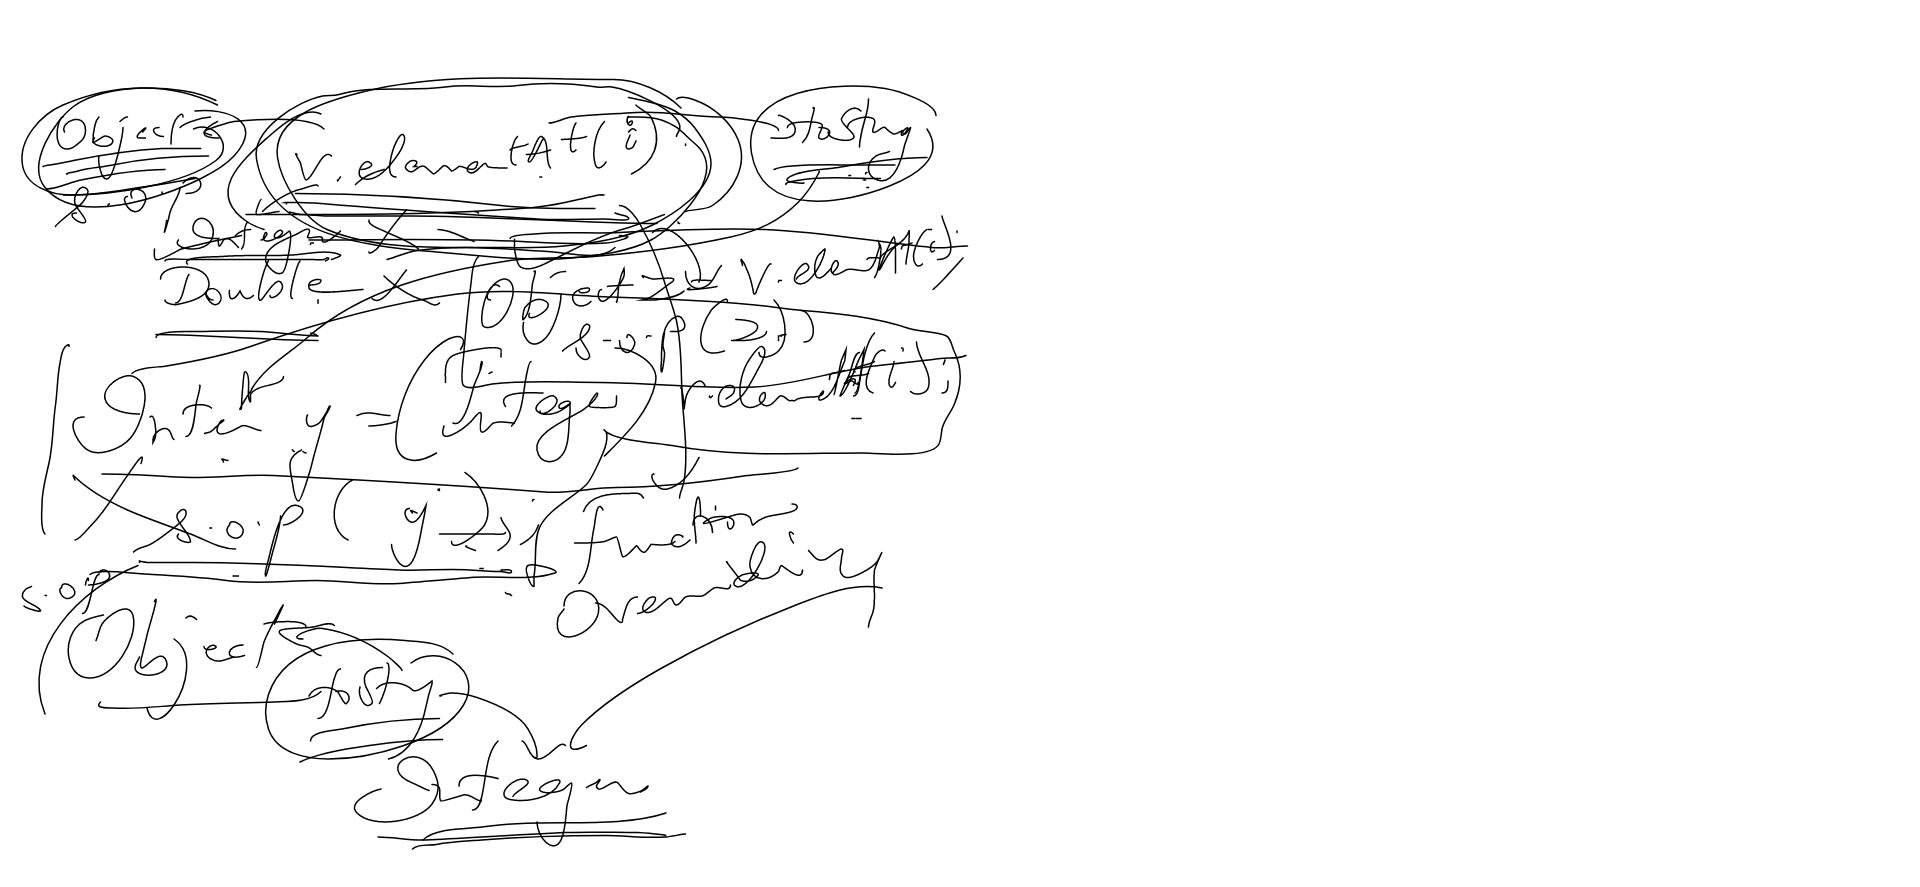 Object v.elementAt(i) toString
s.o.p
Integer
Double Object z = v.elementAt(i);
s.o.p(z);
Integer y = (Integer) v.elementAt(i);
s.o.p(y);
Function
Overriding
s.o.p
Object
toString
Integer